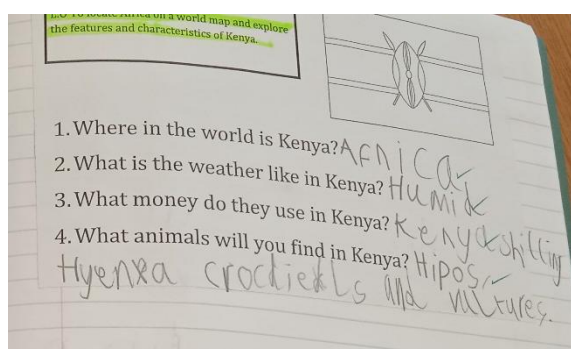 L.O To locate Africa on a world map and explore
the features and characteristics of Kenya.
1. Where in the world is Kenya? Africa
2. What is the weather like in Kenya? Humid
3. What money do they use in Kenya? Kenya shilling
4. What animals will you find in Kenya? Hipos,
Hyenxa crockiekls and vultures.